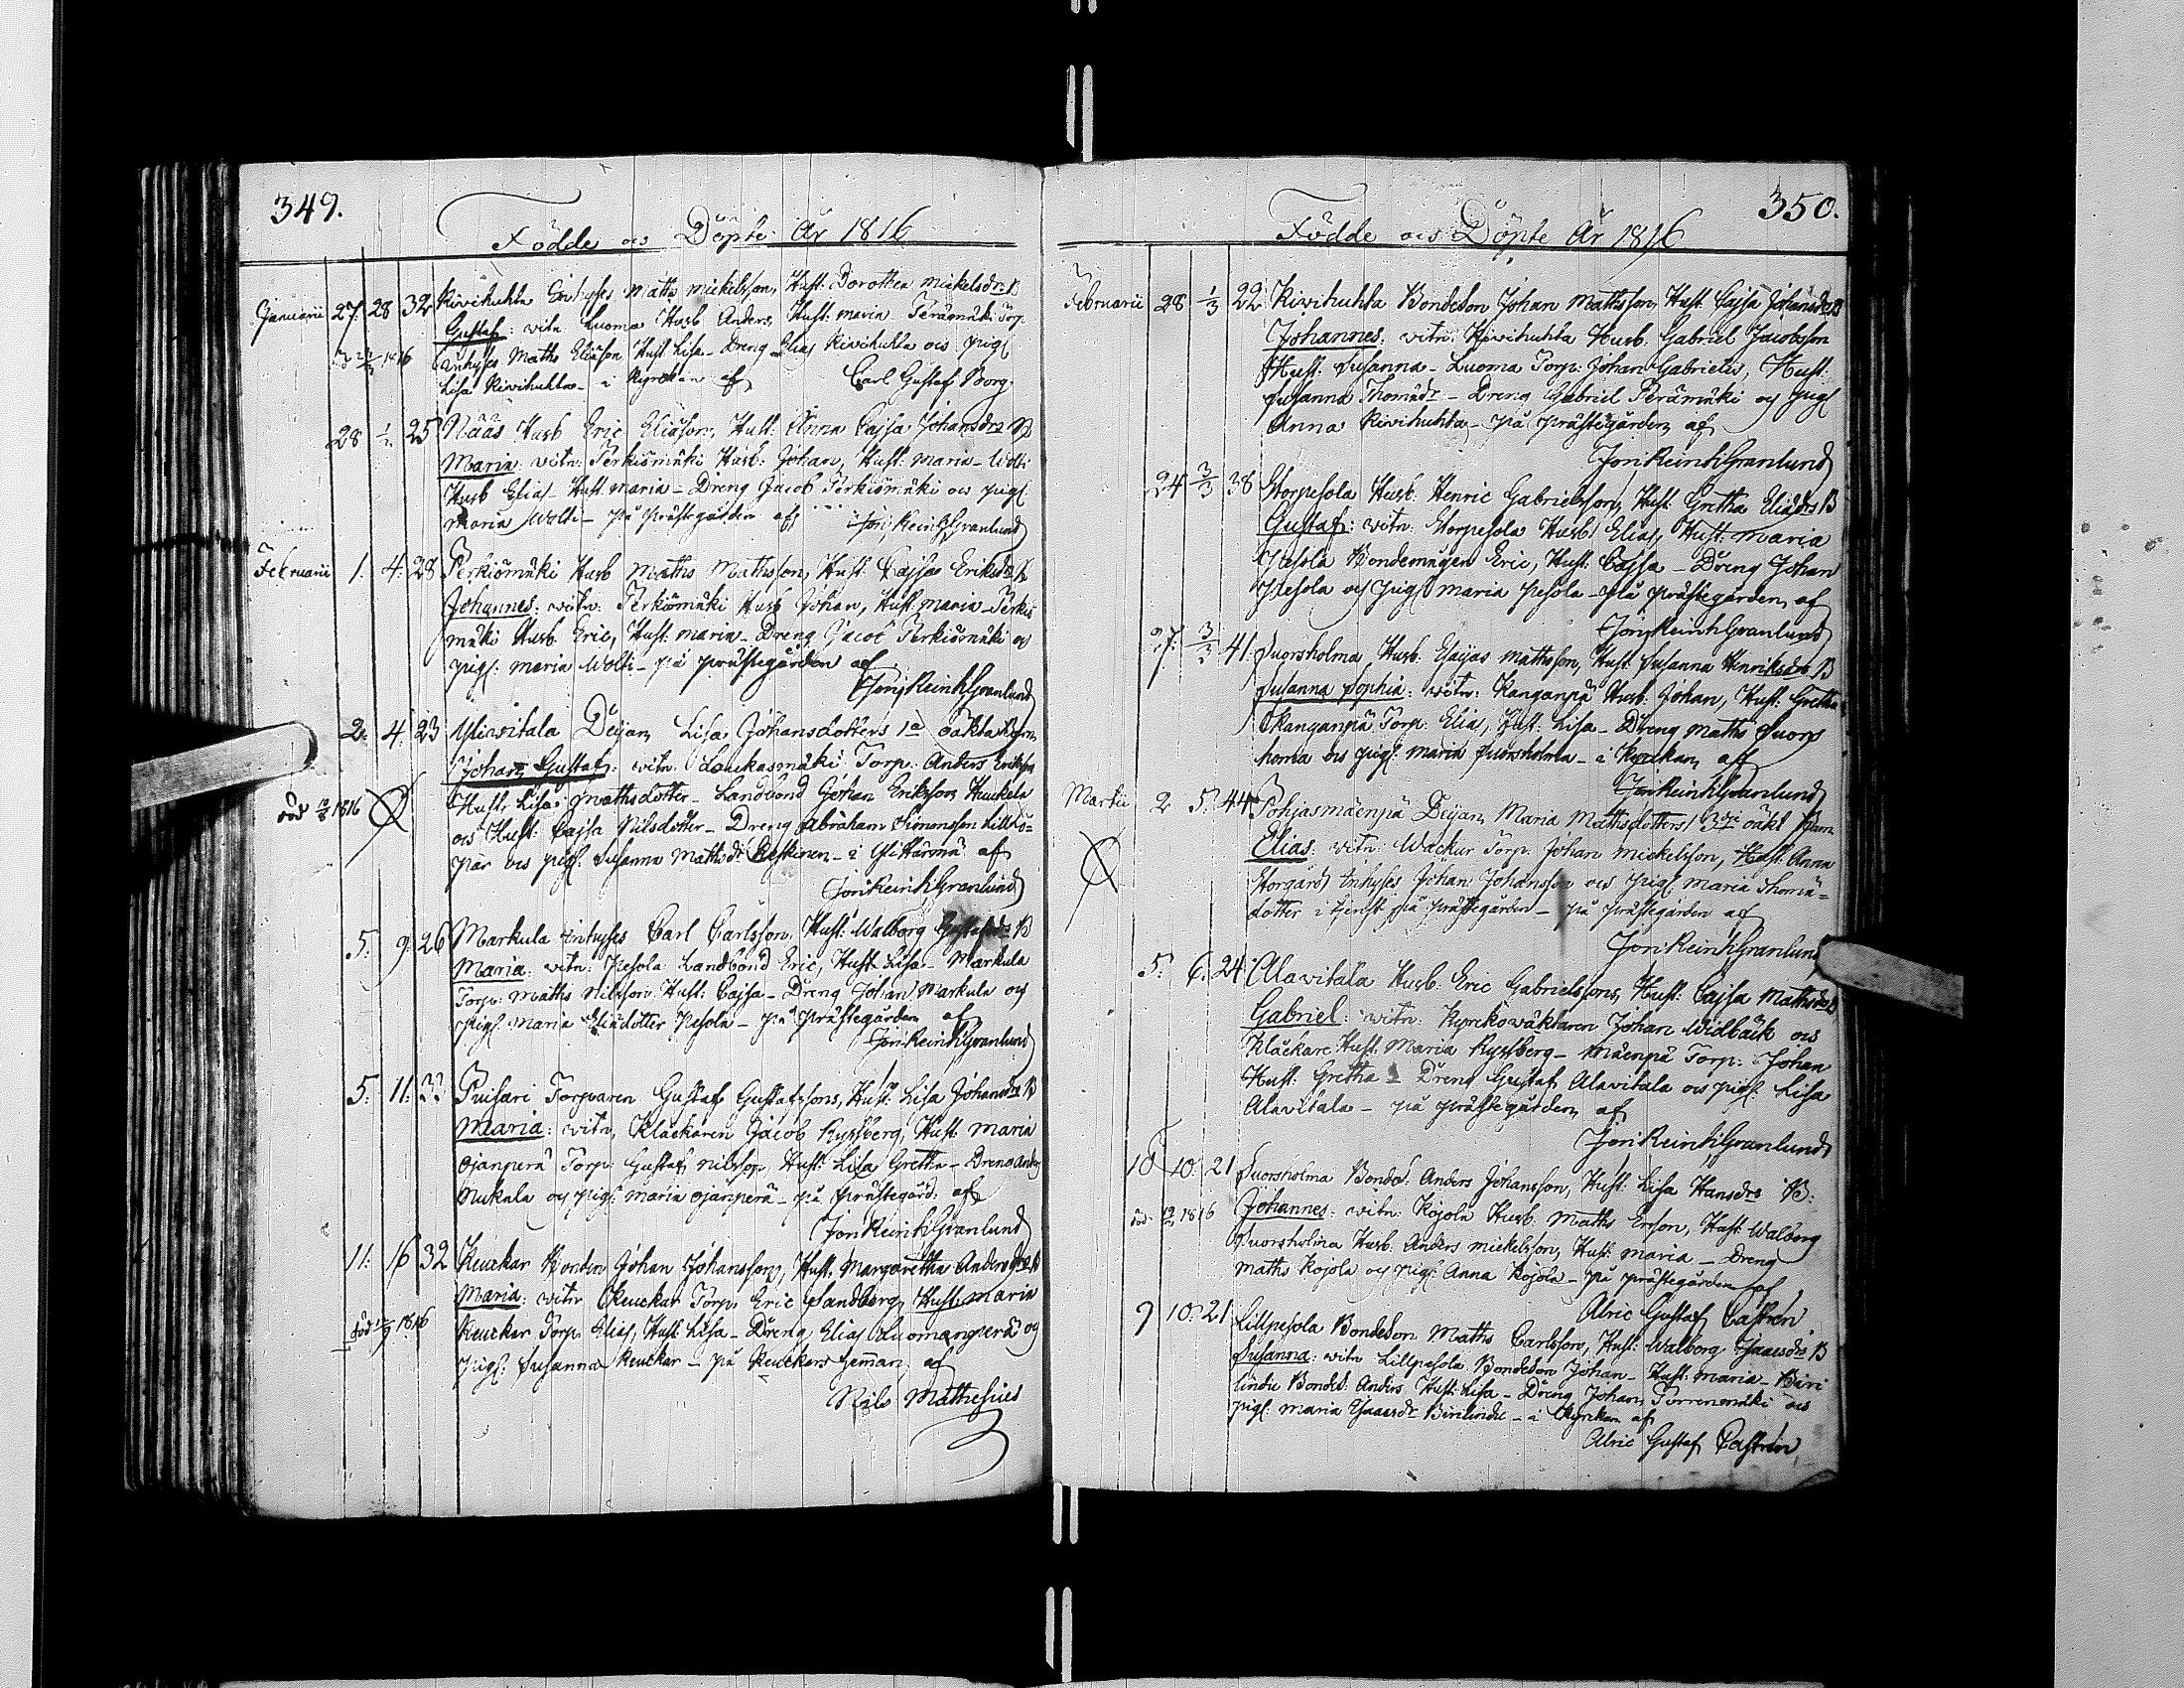 349.
Födde och Döpte År 1816
Januarii 27. 28 32 Kivihuhta Inhyses Matts Mickelsson, Hust: Dorothea Mickelsdr B
Gustaf: vitn: Luoma Husb Anders, Hust: Maria Perämäki Torp
1816 Inhyses Matts Eliasson Hust Lisa - Dreng Elias Kivihuhta och pig:
Lisa Kivihuhta - i Kyrckan af Carl Gustaf Borg.
28 ½ 25 Nääs Husb Eric Eliasson, Hust: Anna Cajsa Johansdr B
Maria: vitn: Perkiömäki Husb: Johan, Hust: Maria - Wolti
Husb Elias - Hust Maria - Dreng Jacob Perkiömäki och pig:
Maria Wolti - på prästegården af Joh: Reinh: Granlund
Februarii 1. 4. 28 Perkiömäki Husb Matts Mattsson, Hust: Cajsa Eriksdr B
Johannes: vitn: Perkiömäki Husb Johan, Hust: Maria - Perkiö
mäki Husb. Eric, Hust: Maria - Dreng Jacob Perkiömäki och
pig: Maria Wolti - på prästegården af
Joh: Reinh: Granlund
2. 4. 23 Ylivitala Deijan Lisa Johansdotters 1a oäkta Barn
Johan Gustaf: vitn: Louckasmäki Torp: Anders Eriksson
död 1816 Hustr Lisa Mattsdotter - Landbond Johan Eriksson Kuckela
och Hust: Cajsa Nilsdotter - Dreng Abraham Simonsson Lillkö-
par och pig: Susanna Mattsdr Keskinen - i Ylihärmä af
Joh: Reinh: Granlund
5. 9. 26 Markula Inhyses Carl Carlsson, Hust: Walborg Gustafsdr B
Maria: vitn: Pesola Landbond Eric, Hust Lisa - Markula
Torp: Matts Nilsson Hust: Cajsa - Dreng Johan Markula och
Pig: Maria Eliädotter Pesola - på prästegården af
Joh: Reinh: Granlund
5. 11. 33 Puisari Torparen Gustaf Gustafssons, Hust: Lisa Johansdr B
Maria: vitn, Klåckaren Jacob Ryssberg, Hust: Maria
Ojanperä Torp: Gustaf Nilsson, Hust: Lisa Gretha - Dreng Anders
Nukala och pig: Maria Ojanperä - på prästegård: af
Joh: Reinh: Granlund
11. 16 32 Keuckar Bonden Johan Johansson, Hust. Margaretha Andersdr B
Maria: vitn Keuckar Torp. Eric Sandberg, Hust: Maria
död 1816 Keuckar Torp: Elias, Hust: Lisa - Dreng Elias Luomanperä och
pig: Susanna Keuckar - på Keuckars heman af
Nils Mathesius
350.
Födde och Döpte År 1816
Februarii 28 1/3 22 Kivihuhta Bondeson Johan Mattsson, Hust Cajsa Johansdr B
Johannes: vitn: Kivihuhta Husb. Gabriel Jacobsson
Hust: Susanna - Luoma Torp: Johan Gabrielss, Hust:
Susanna Thomædr - Dreng Gabriel Perämäki och pig:
Anna Kivihuhta - på prästegården af
Joh: Reinh: Granlund
24 3/3 38 Storpesola Husb: Henric Gabrielsson, Hust: Gretha Eliædr B
Gustaf: vitn: Storpesola Husb: Elias, Hust: Maria
Pesola Bondemågen Eric, Hust: Cajsa - Dreng Johan
Pesola och pig: Maria Pesola - på prästegården af
Joh: Reinh: Granlund
27. 3/3 41. Suorsholma Husb: Esaijas Mattsson, Hust: Susanna Henriksdr B
Susanna Sophia: vitn: Kanganpä Husb: Johan, Hust: Gretha
Kanganpä Torp: Elias, Hust: Lisa - Dreng Matts Suors
homa och pig: Maria Suorsholma - i kyrckan af
Joh: Reinh: Granlund
Martii 2. 5. 44 Pohjasmäenpä Deijan Maria Mattsdotters 3die oäkt Barn
Elias: vitn: Wackur Torp: Johan Mickelsson, Hust: Anna
Storgård Inhyses Johan Johansson och pig: Maria Thomä-
dotter i tjenst på prästegården - på prästegården af
Joh: Reinh: Granlund
5. 6. 24. Alavitala Husb: Eric Gabrielssons, Hust: Cajsa Mattsdr B
Gabriel: vitn: Kyrkowäktaren Johan Widbäck och
Klåckare Hust: Maria Ryssberg - Mäenpä Torp: Johan
Hust: Gretha - Dreng Gustaf Alavitala och pig: Lisa
Alavitala - på prästegården af
Joh: Reinh: Granlund
10 10. 21 Suorsholma Bonded. Anders Johansson, Hust: Lisa Hansdr B:
död 1816 Johannes: vitn: Kojola Husb. Matts Ersson, Hust: Walborg
Suorsholma Husb: Anders Mickelsson, Hust: Maria - Dreng
Matts Kojola och pig: Anna Kojola - på prästegården af
Alric Gustaf Castrén
9 10. 21 Lillpesola Bondeson Matts Carlsson, Hust: Walborg Isaacsdr B
Susanna: vitn Lillpesola Bondeson Johan - Hust: Maria - Biri
linda Bonded: Anders Hust: Lisa - Dreng Johan Porrenmäki och
pig: Maria Isaacsdr Birilinda - i Kyrckan af
Alric Gustaf Castrén